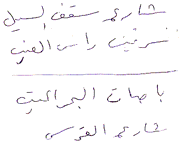 شارع سقف السيل
شرقي راس العين
باصات البراعيت
شارع القدس